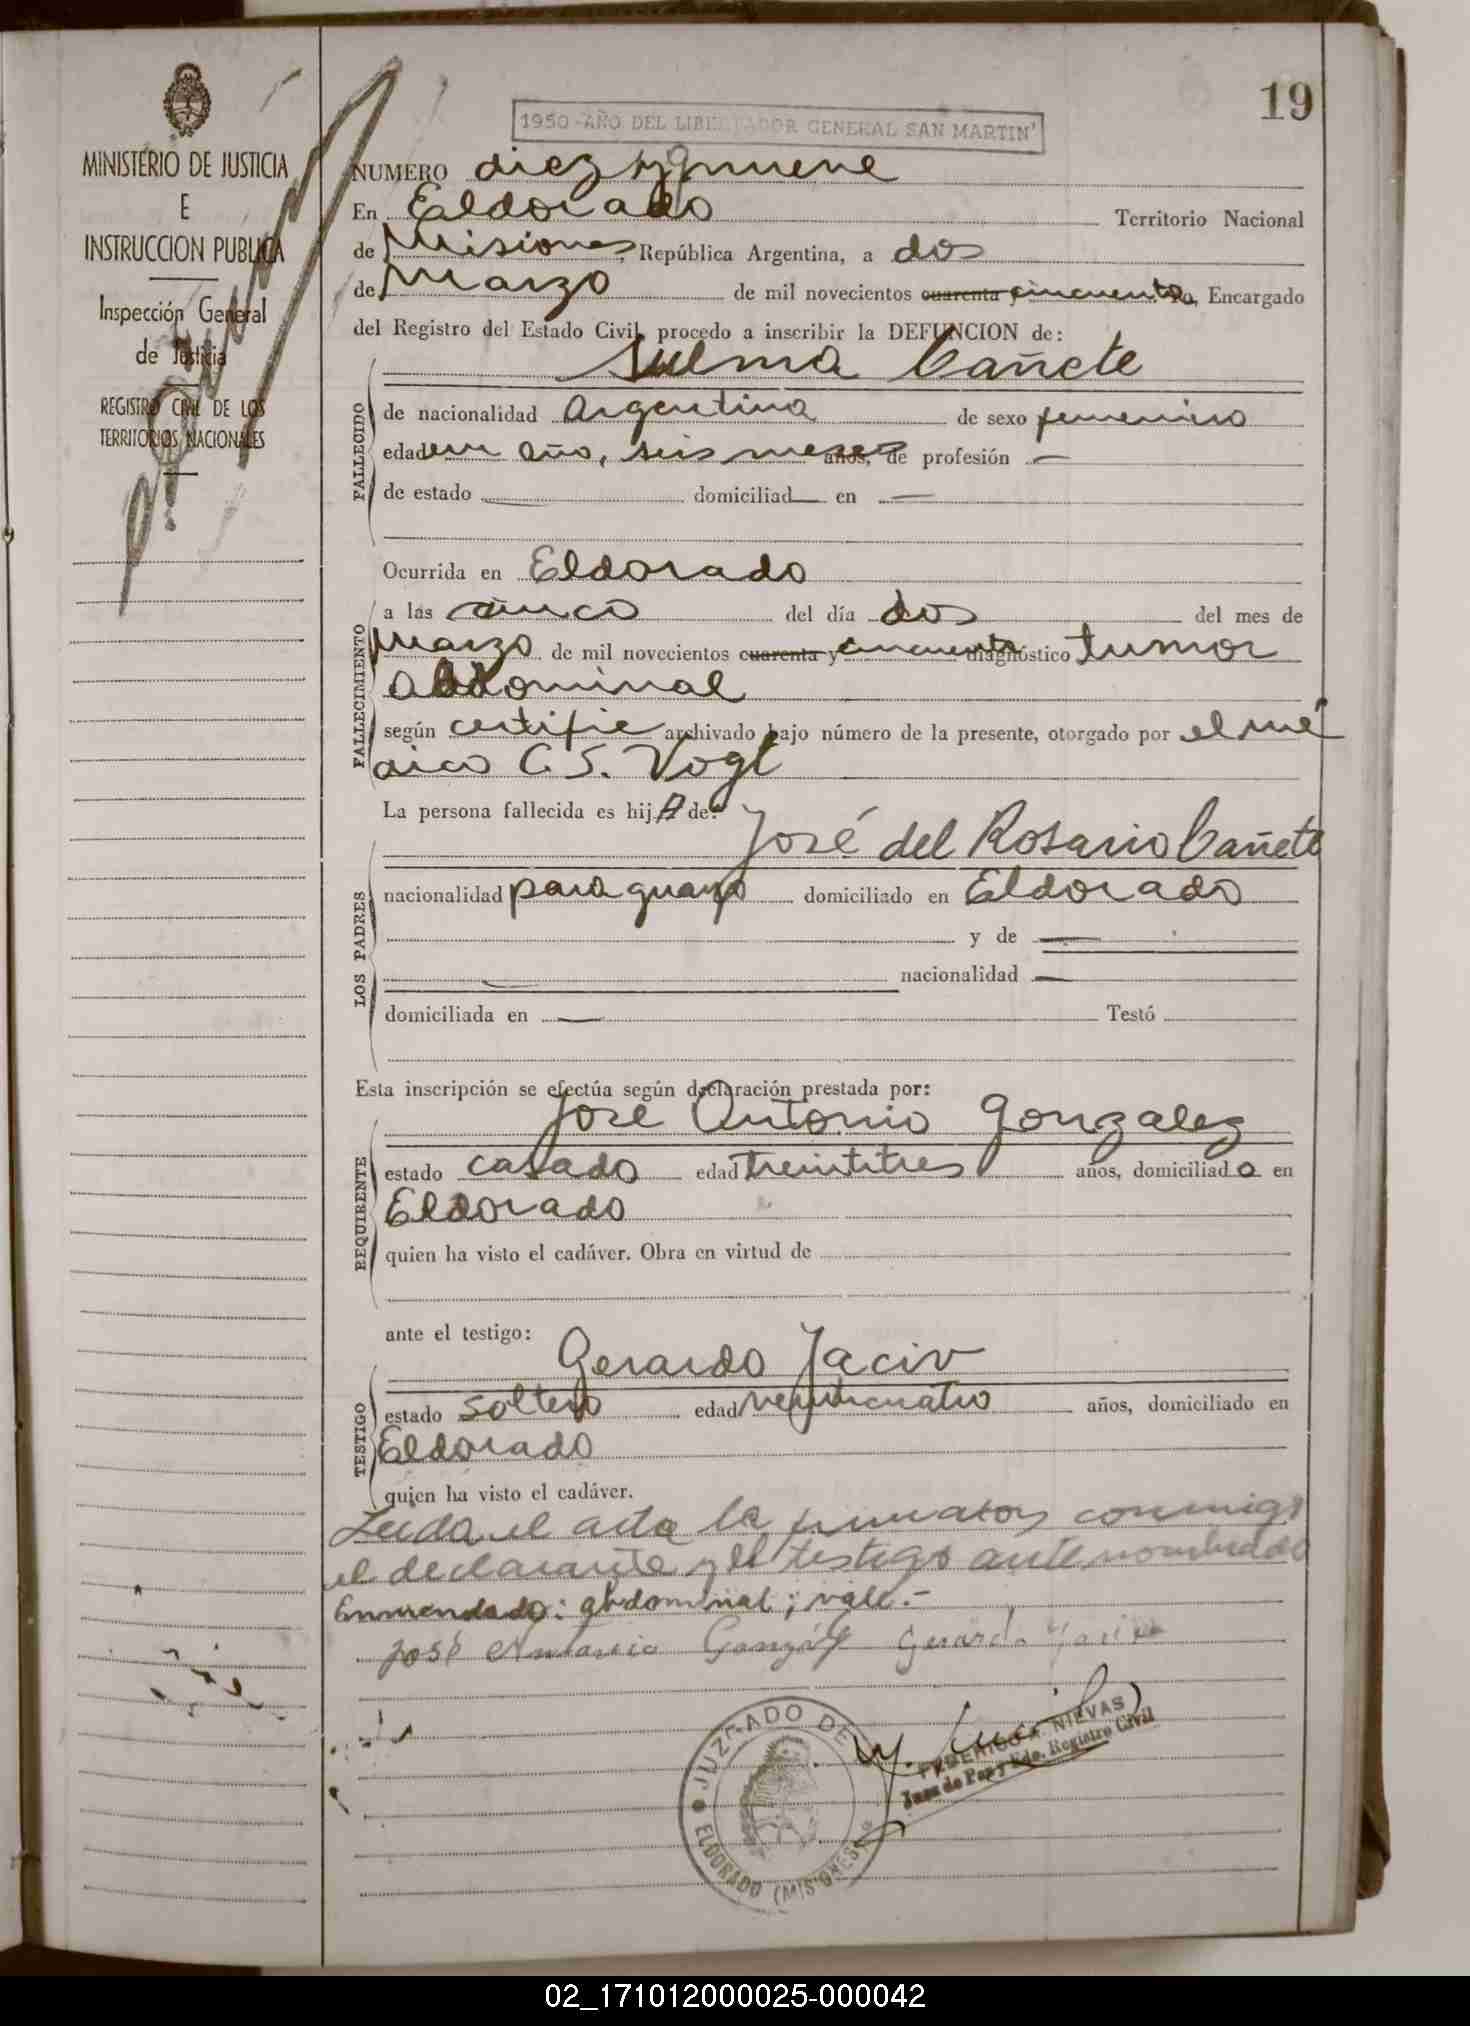 19
1950-AÑO DEL LIBERTADOR GENERAL SAN MARTIN"
MINISTERIO DE JUSTICIA
E
INSTRUCCION PUBLICA
Inspección General
de Justicia
REGISTRO CIVIL DE LOS
TERRITORIOS NACIONALES
NUMERO diez y nueve
En Eldorado Territorio Nacional
de Misiones, República Argentina, a dos
de Marzo de mil novecientos cuarenta y cincuenta Encargado
del Registro del Estado Civil, procedo a inscribir la DEFUNCION de:
Sulma Cañete
FALLECIDO
de nacionalidad Argentina de sexo femenino
edad un año, seis meses años, de profesión —
de estado domiciliad en —
Ocurrida en Eldorado
FALLECIMIENTO
a las cinco del día dos del mes de
Marzo de mil novecientos cuarenta y cincuenta diagnóstico tumor
abdominal
según certific archivado bajo número de la presente, otorgado por el mé
dico C. S. Vogt
La persona fallecida es hija de:
José del Rosario Cañete
LOS PADRES
nacionalidad paraguayo domiciliado en Eldorado
y de —
— nacionalidad —
domiciliada en — Testó
Esta inscripción se efectúa según declaración prestada por:
José Antonio Gonzalez
REQUIRENTE
estado casado edad treintitres años, domiciliado en
Eldorado
quien ha visto el cadáver. Obra en virtud de
ante el testigo:
Gerardo Yaciv
TESTIGO
estado soltero edad veinticuatro años, domiciliado en
Eldorado
quien ha visto el cadáver.
Leida el acta la firmaron conmigo
el declarante y el testigo antenombrado
Enmendado: abdominal; vale.-
José Antonio González Gerardo
JUZGADO DE
ELDORADO (MISIONES)
FEDERICO A. NIEVAS
Juez de Paz y Edo. Registro Civil
02_171012000025-000042